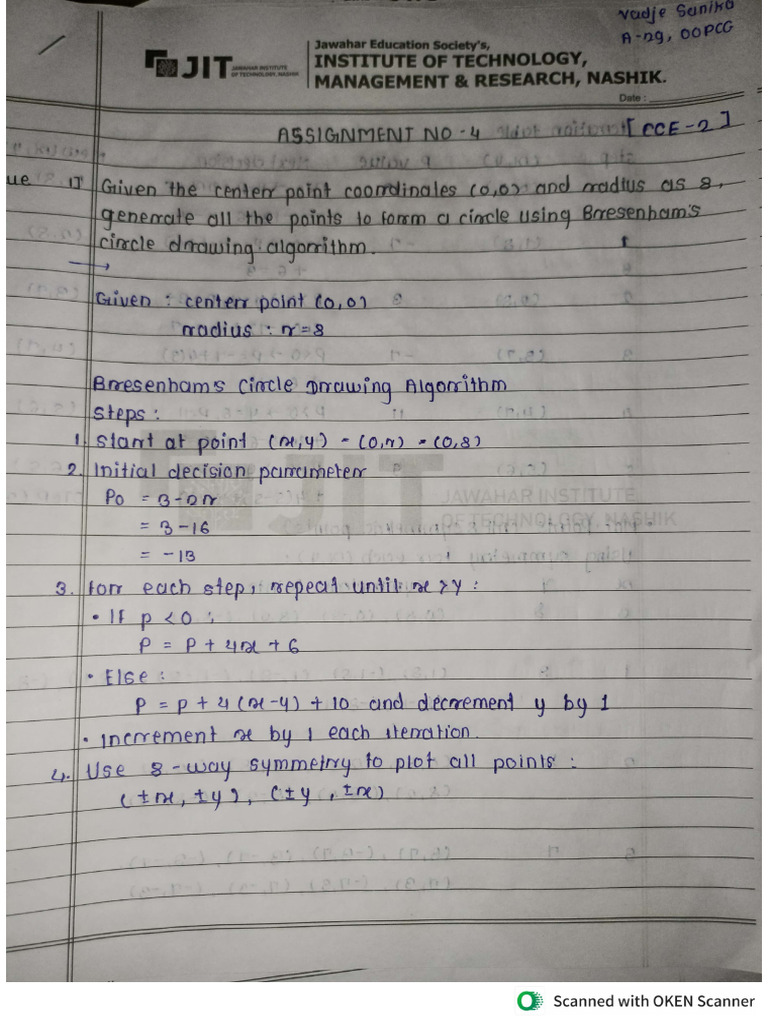 Vadje Sanika
A-29, OOPCG
JIT JAWAHAR INSTITUTE OF TECHNOLOGY, NASHIK
Jawahar Education Society's,
INSTITUTE OF TECHNOLOGY,
MANAGEMENT & RESEARCH, NASHIK.
Date :
ASSIGNMENT NO - 4 [CCE-2]
que 1] Given the center point coordinates (0,0) and radius as 8,
generate all the points to form a circle using Bresenham's
circle drawing algorithm.
→
Given : center point (0,0)
radius : r=8
Bresenham's Circle Drawing Algorithm
Steps :
1. Start at point (x,y) = (0,r) = (0,8)
2. Initial decision parameter
P0 = 3-2r
= 3-16
= -13
3. For each step, repeat until x≥y :
• If p<0 :
P = P + 4x + 6
• Else :
P = P + 4(x-y) + 10 and decrement y by 1
• Increment x by 1 each iteration.
4. Use 8-way symmetry to plot all points :
(±x, ±y), (±y, ±x)
JIT JAWAHAR INSTITUTE
OF TECHNOLOGY, NASHIK
Scanned with OKEN Scanner